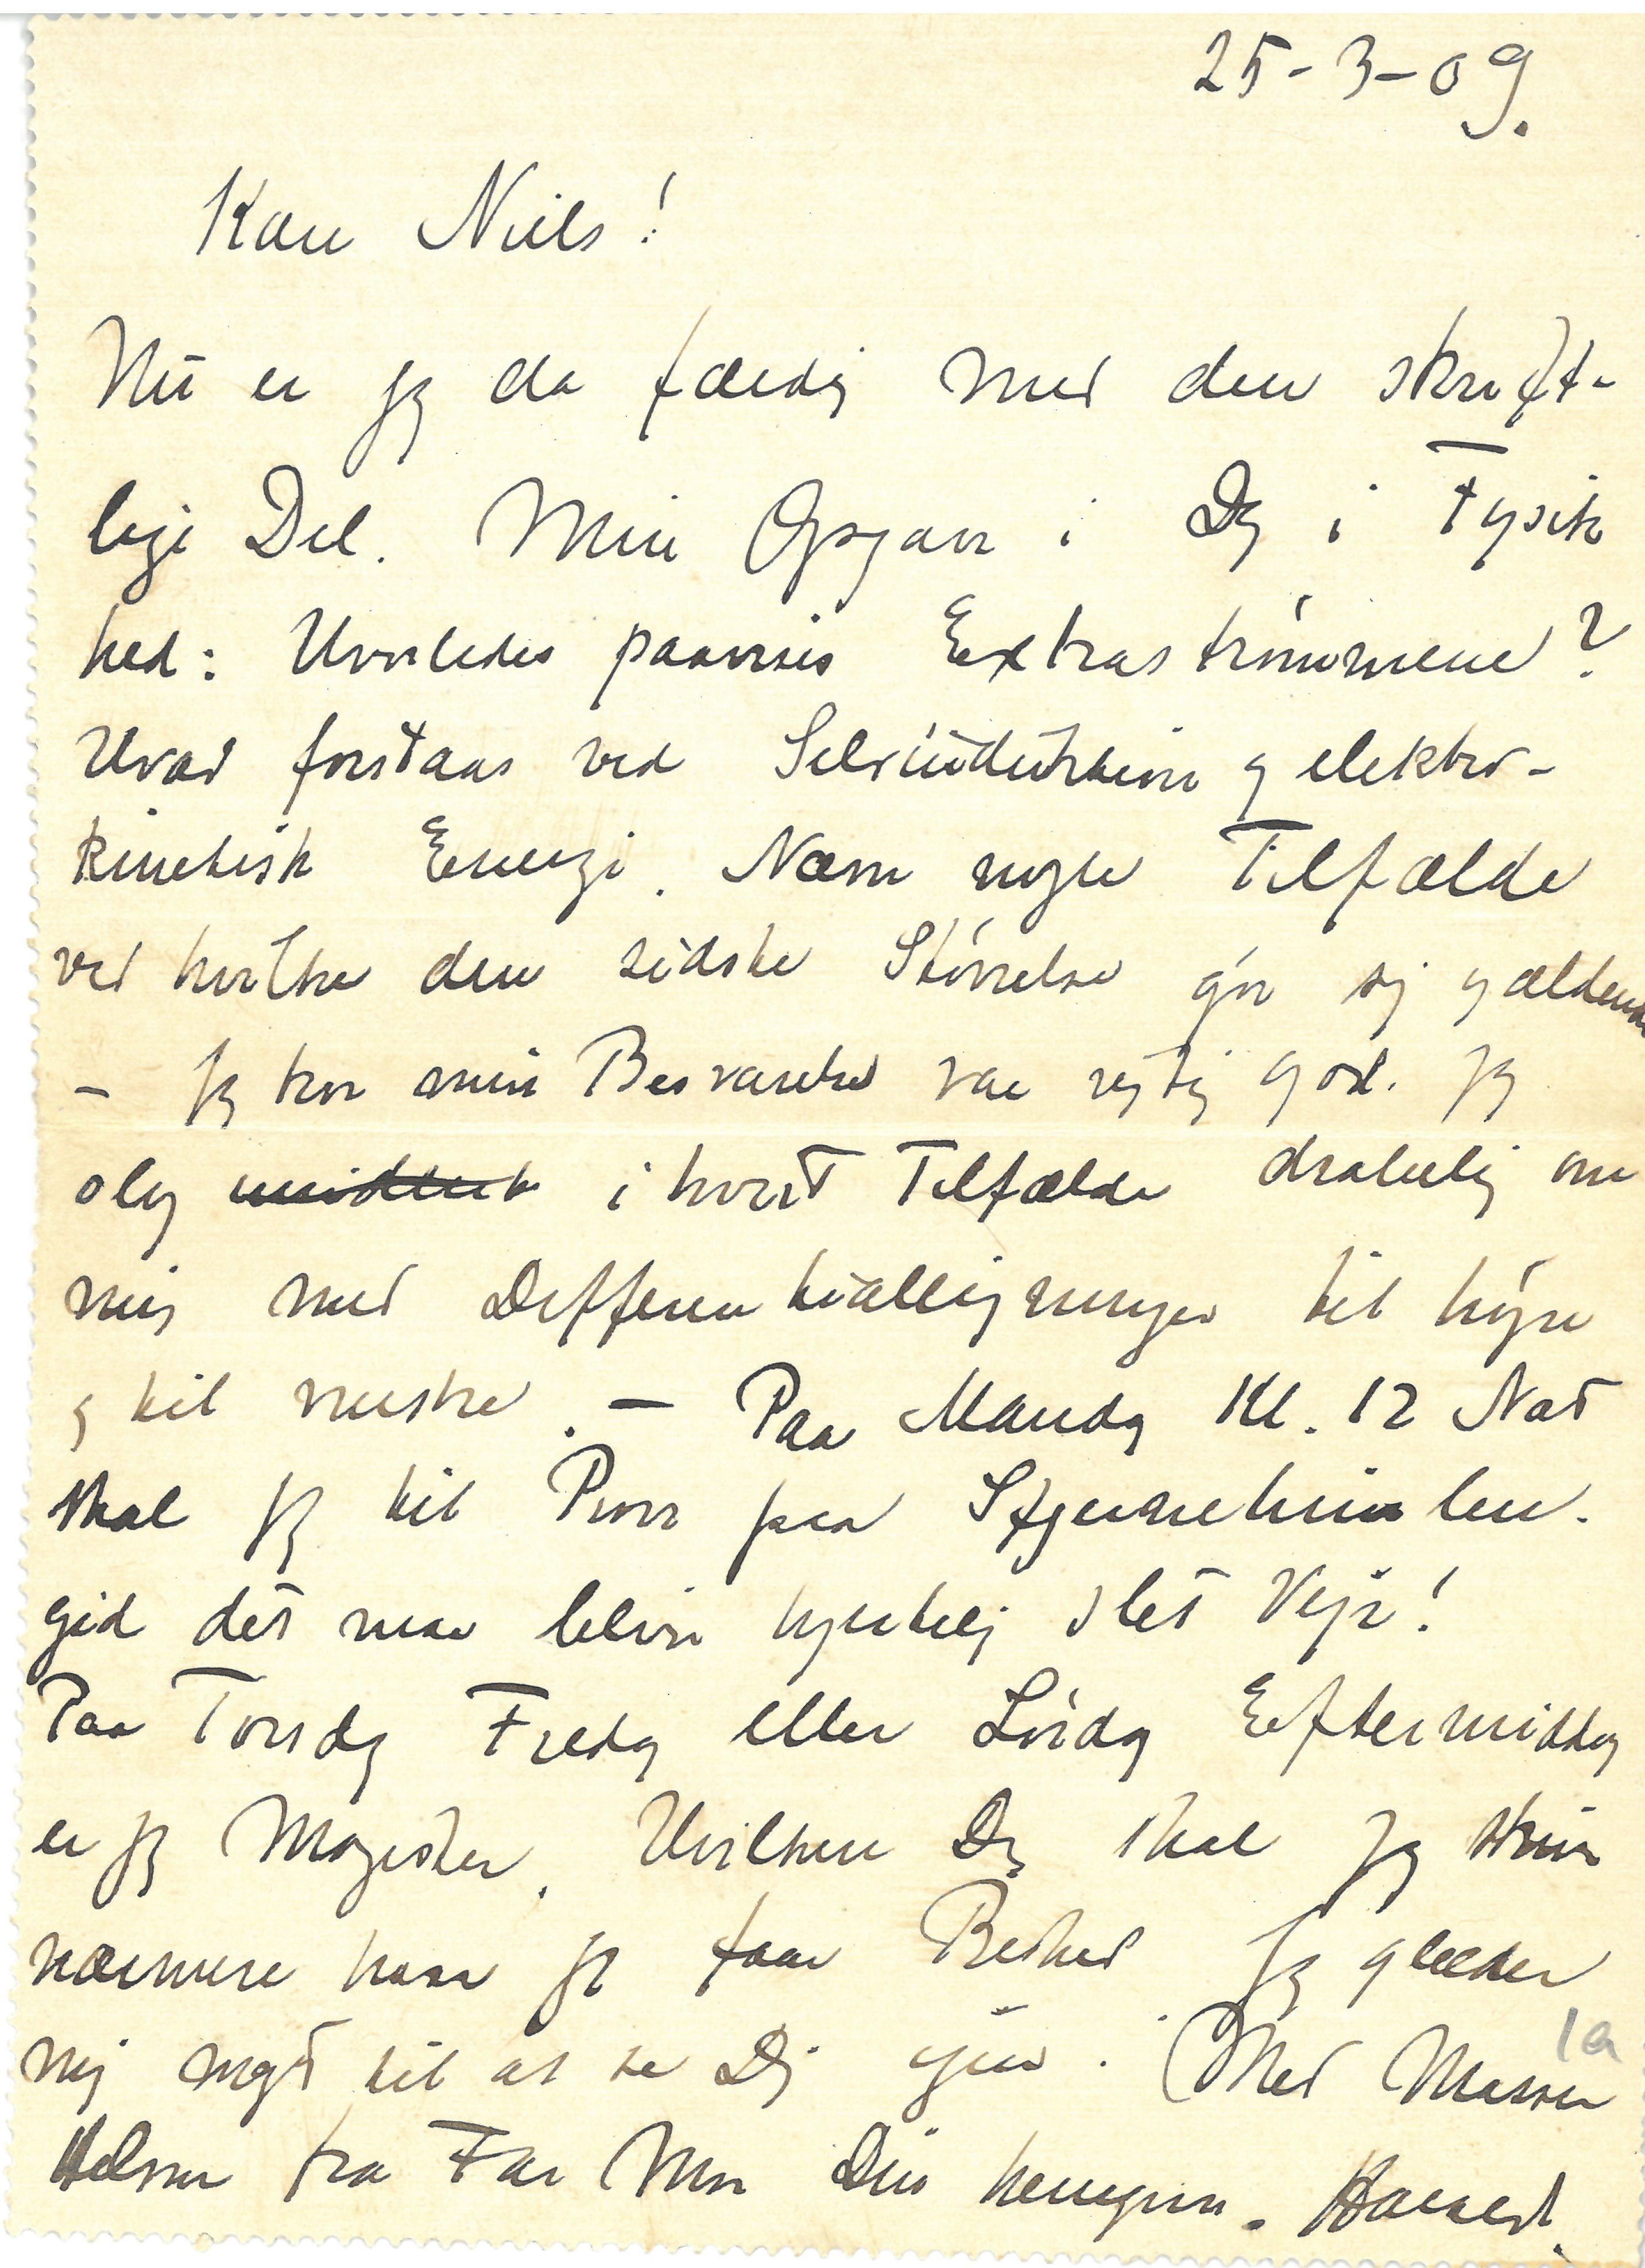 25-3-09.
Kære Niels!
Nu er jeg da færdig med den skrift-
lige Del. Min Opgave i Dag i Fysik
hed: Hvorledes paavises Extraströmmene?
Hvad forstaas ved Selvinduktion og elektro-
kinetisk Energi. Nævn nogle Tilfælde
ved hvilke den sidste Störrelse gör sig gældende
- Jeg tror min Besvarelse var rigtig god. Jeg
slog i hvert Tilfælde drabelig om
mig med Differentialligninger til höjre
og til venstre. — Paa Mandag Kl. 12 Nat
skal jeg til Pröve paa Stjernehimlen.
gid det maa blive hjertelig slet Vejr!
Paa Torsdag Fredag eller Lördag Eftermiddag
er jeg Magister. Hvilken Dag skal jeg skrive
nærmere naar jeg faar Besked. Jeg glæder
mig meget til at se Dig igen. Med Masser
Hilsner fra Far Mor Din hengivne. Harald.
1a